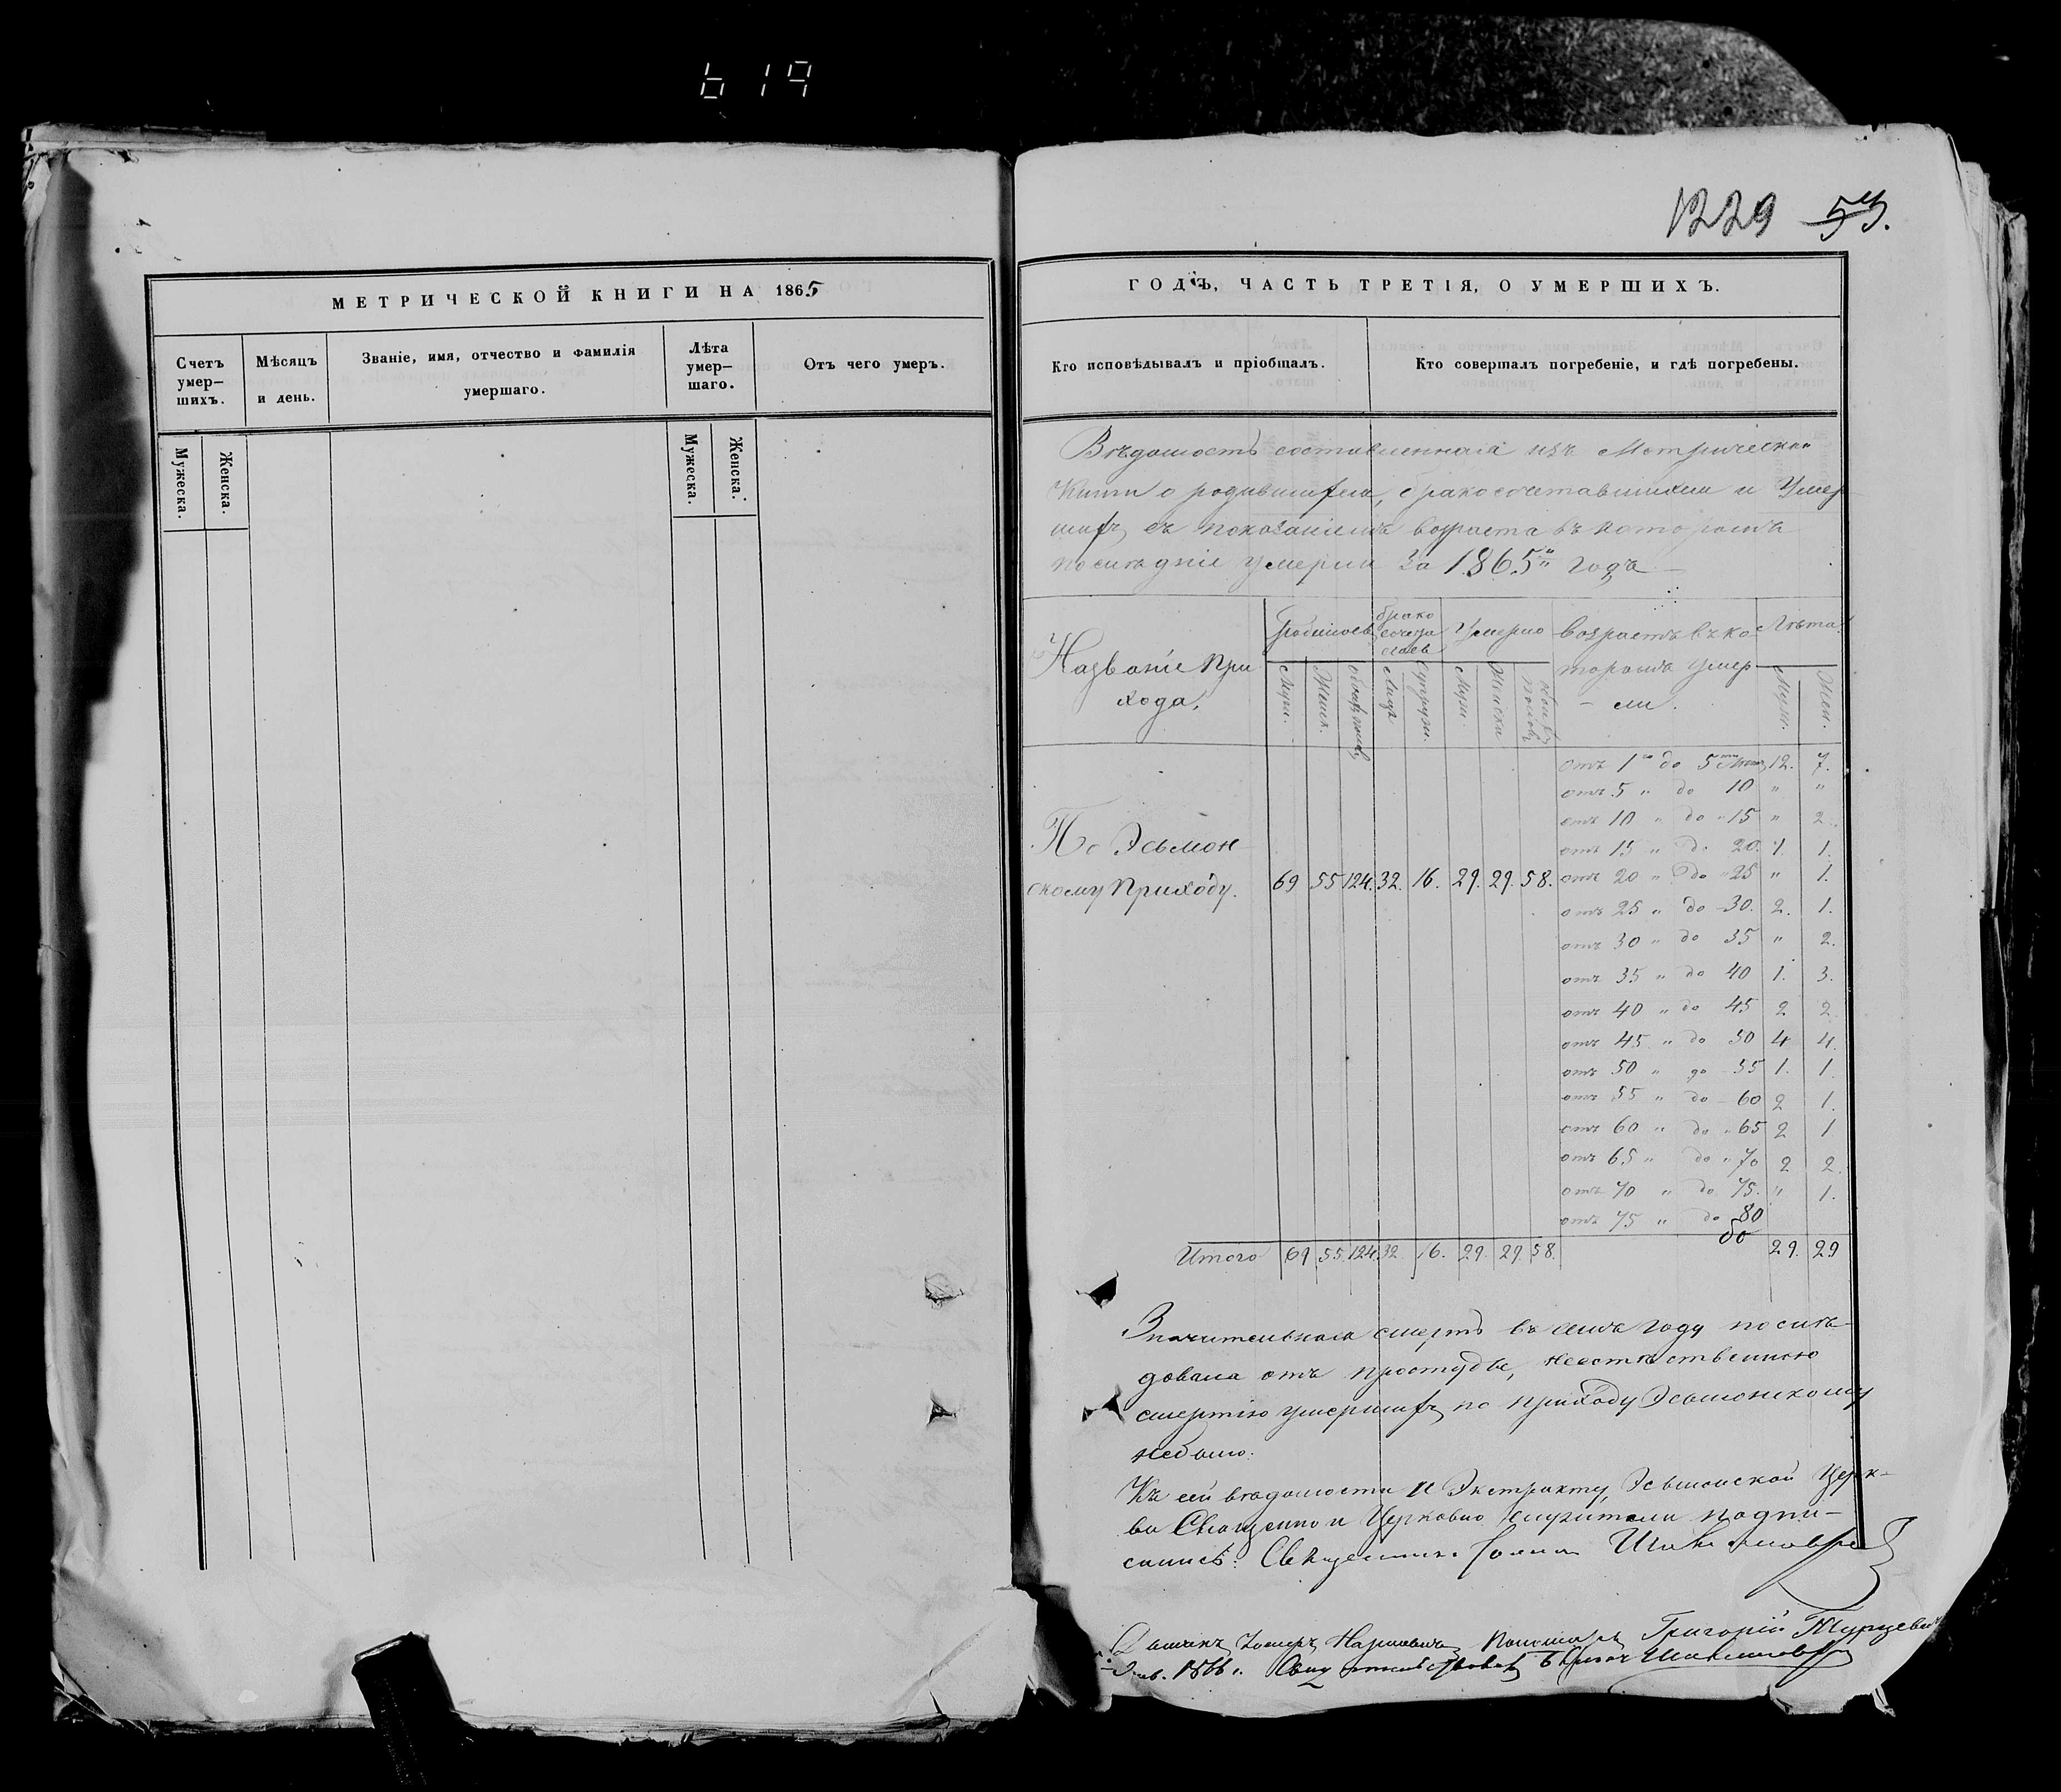 619
1229 53.
МЕТРИЧЕСКОЙ КНИГИ НА 1865
Счетъ умер-шихъ.
Мѣсяцъ и день.
Званіе, имя, отчество и фамилія умершаго.
Лѣта умер-шаго.
Отъ чего умеръ.
Мужеска.
Женска.
Мужеска.
Женска.
ГОДЪ, ЧАСТЬ ТРЕТІЯ, О УМЕРШИХЪ.
Кто исповѣдывалъ и пріобщалъ.
Кто совершалъ погребеніе, и гдѣ погребены.
Вѣдомость составленная изъ Метрической
Книги о родившихся, бракосочетавшихся и Умер
шихъ, съ показаніемъ возраста въ которомъ
послѣдніе умерли за 1865й годъ
Названіе При
хода,
Родилось
брако
сочета
лось
Умерло
Возрастъ въ ко
торомъ умер
ли.
Лѣта
Муж. Женск. обоего Лицъ Супруж. Муж. Женска Муж. Жен.
отъ 1го до 5ти 12. 7.
отъ 5 " до 10 " "
отъ 10 " до " 15 " 2.
отъ 15 " до 20. 1. 1.
По Эсьмон
скому Приходу. 69 55 124. 32. 16. 29. 29. 58. отъ 20 " до 25 " 1.
отъ 25 " до 30. 2. 1.
отъ 30 " до 35 " 2.
отъ 35 " до 40 1. 3.
отъ 40 " до 45 2 2
отъ 45 " до 50 4 4.
отъ 50 " до 55 1. 1
отъ 55 " до 60 2 1.
отъ 60 " до " 65 2 1
отъ 65 " до " 70 2 2.
отъ 70 " до 75. " 1.
отъ 75 " до 80
до
Итого 69 55. 124. 32. 16. 29. 29. 58. 29. 29
Значительная смерть въ семъ году послѣ-
довала отъ простуды, неестественною
смертію умершихъ по приходу Эсьмонскому
небыло.
Къ сей вѣдомости и Экстракту, Эсьмонской Церк-
ви Священно и Церковно служители подпи-
сались: Священникъ
Пономарь Григорій Турцевичъ
Янв. 1866 г.